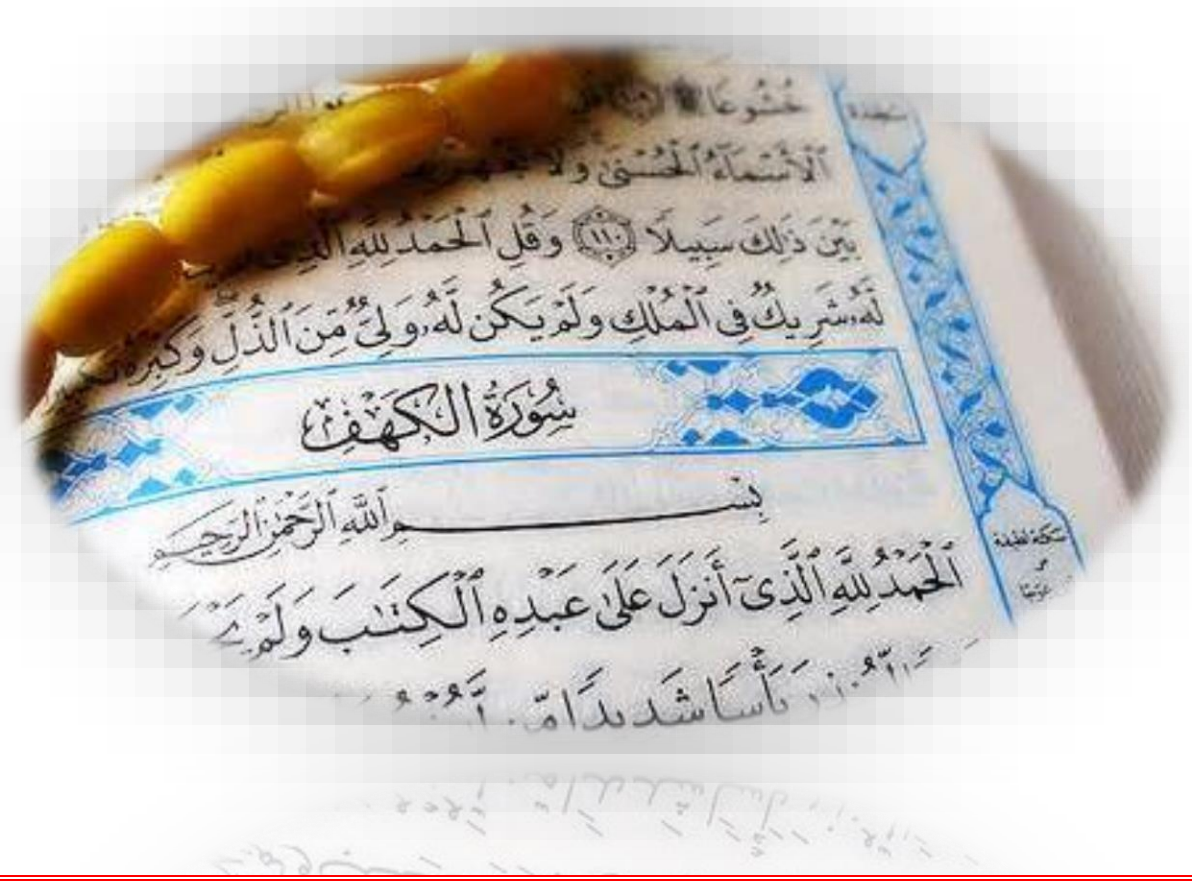 خُشُوعًا
ٱلْأَسْمَآءُ ٱلْحُسْنَىٰ وَلَا
بَيْنَ ذَٰلِكَ سَبِيلًا ١١٠ وَقُلِ ٱلْحَمْدُ لِلَّهِ ٱلَّذِى
لَّهُۥ شَرِيكٌ فِى ٱلْمُلْكِ وَلَمْ يَكُن لَّهُۥ وَلِىٌّ مِّنَ ٱلذُّلِّ وَكَبِّرْهُ
سُورَةُ الكَهْفِ
بِسْمِ ٱللَّهِ ٱلرَّحْمَٰنِ ٱلرَّحِيمِ
ٱلْحَمْدُ لِلَّهِ ٱلَّذِىٓ أَنزَلَ عَلَىٰ عَبْدِهِ ٱلْكِتَٰبَ وَلَمْ
بَأْسًا شَدِيدًا مِّن
سجدة
سكتة لطيفة
عوجا